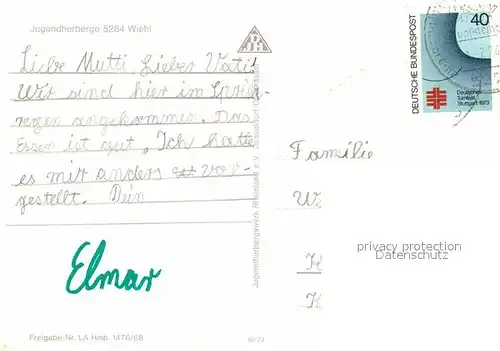 Jugendherberge 5284 Wiehl
Liebe Mutti, Lieber Vati!
Wir sind hier im Sprüh-
regen angekommen. Das
Essen ist gut, Ich hatte
es mir anders vor-
gestellt. Dein
Elmar
Freigabe-Nr. LA Hmb. 1476/68
Jugendherbergswerk Rheinland e.V.
DEUTSCHE BUNDESPOST
40
Deutsches
Turnfest
Stuttgart 1973
Familie
W
K
K
privacy protection